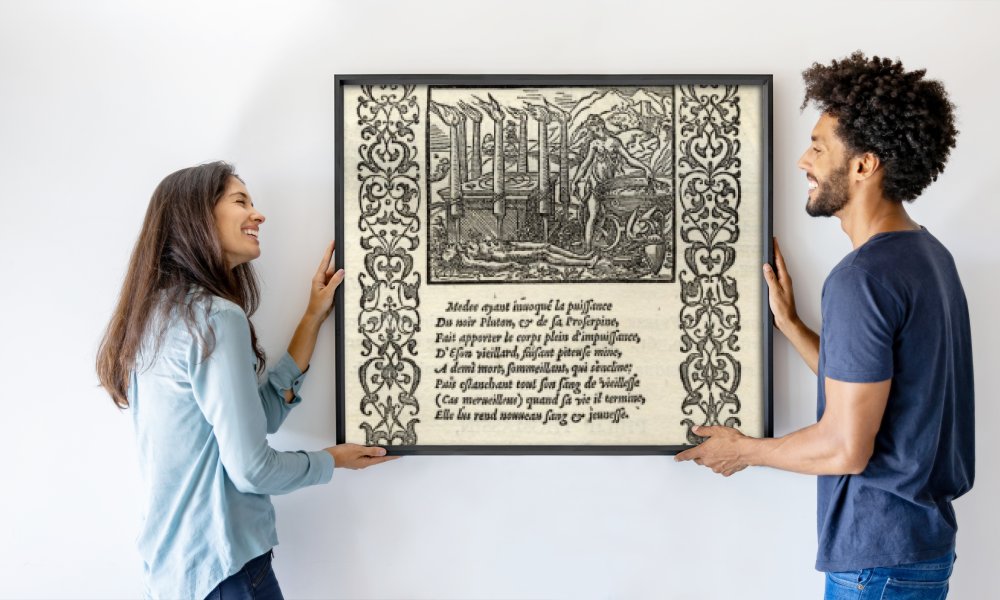 Medee ayant inuoqué la puiſſance
Du noir Pluton, & de ſa Proſerpine,
Fait apporter le corps plein d'impuiſſance,
D'Eſon vieillard, faiſant piteuſe mine,
A demi mort, ſommeillant, qui s'encline:
Puis eſtanchant tout ſon ſang de vieilleſſe
(Cas merueilleus) quand ſa vie il termine,
Elle lui rend nouueau ſang & jeuneſſe.